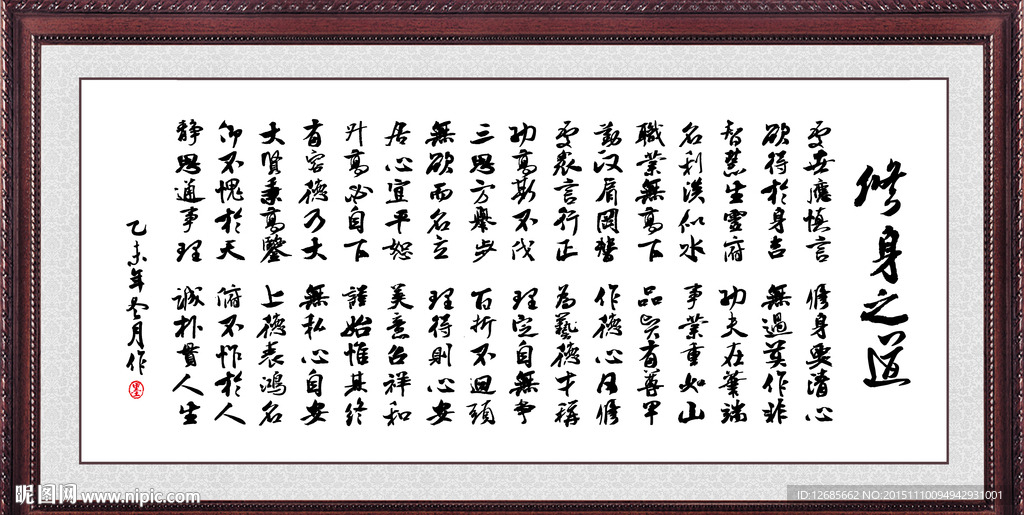 脩身之道
處世應慎言 脩身要清心
欲得於身吉 無過莫作非
智慧生靈府 功夫在筆端
名利淡似水 事業重如山
職業無高下 品質有尊卑
勤政肩罔懈 作德心日脩
處衆言行正 為藝德才稱
功高斯不伐 理定自無爭
三思方舉步 百折不迴頭
無欲而名立 理得則心安
居心宜平恕 美意召祥和
升高必自下 謹始惟其終
有容德乃大 無私心自安
大賢秉高鑒 上德表鴻名
仰不愧於天 俯不怍於人
靜思通事理 誠朴貫人生
乙未年冬月作
墨
昵图网 www.nipic.com
ID:12685662 NO:20151110094942931001